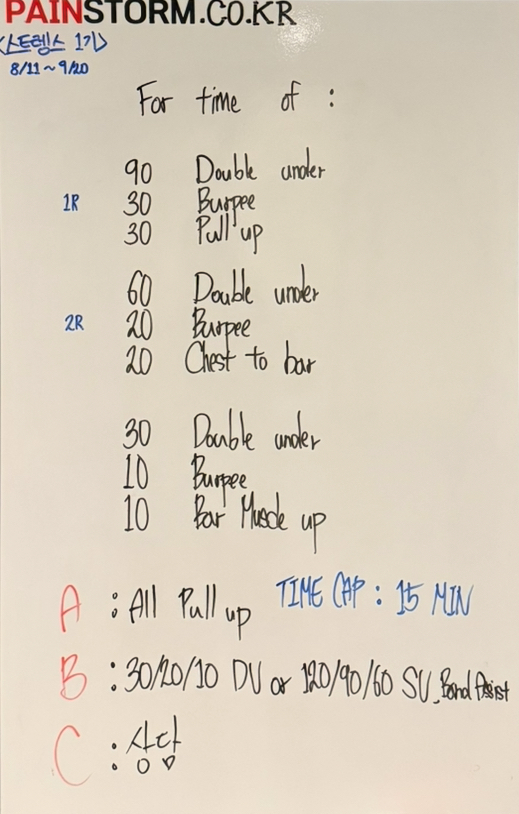 PAINSTORM.CO.KR
<스트렝스 1기>
8/11~9/20
For time of :
90 Double under
1R 30 Burpee
30 Pull up
60 Double under
2R 20 Burpee
20 Chest to bar
30 Double under
10 Burpee
10 Bar Muscle up
A : All Pull up TIME CAP : 15 MIN
B : 30/20/10 DU or 120/90/60 SU, Band Assist
C : 상담